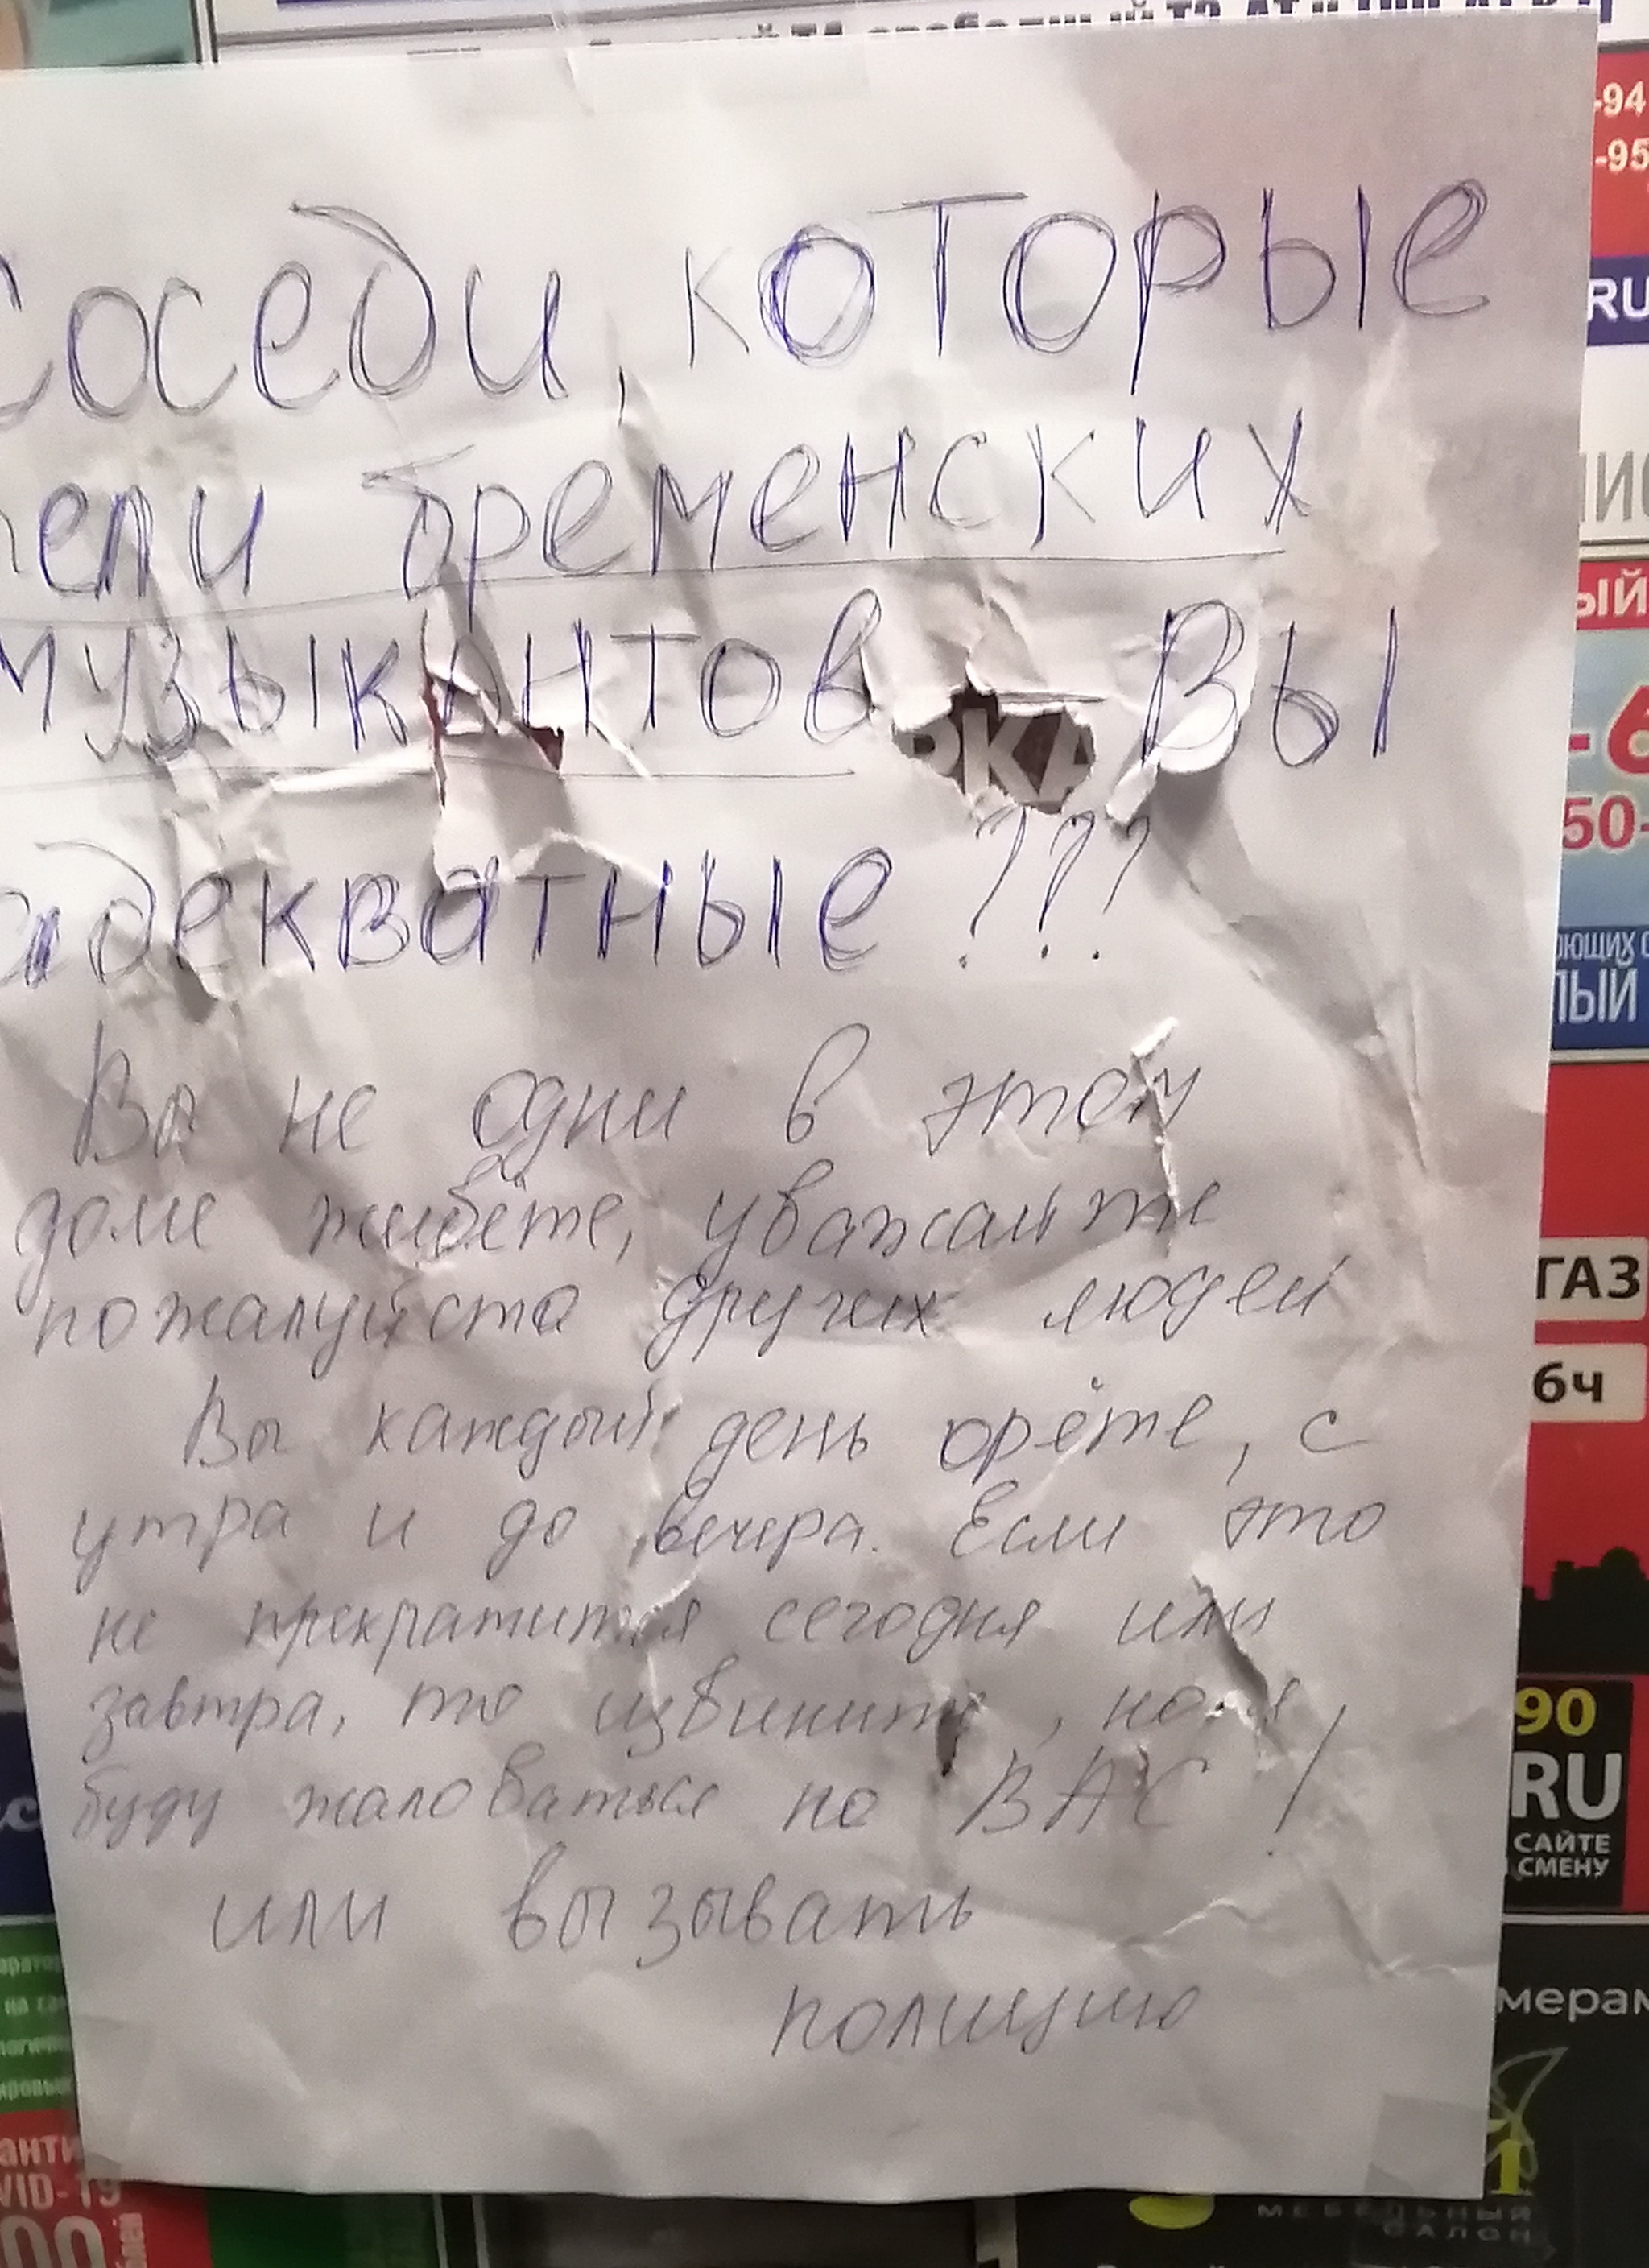 Соседи, которые
пели бременских
музыкантов – Вы
адекватные???
Вы не одни в этом
доме живёте, уважайте
пожалуйста других людей
Вы каждый день орёте, с
утра и до вечера. Если это
не прекратится сегодня или
завтра, то извините, но я
буду жаловаться на ВАС!
или вызывать
полицию
-94
-95
RU
ЫЙ
-6
50-
РКА
ЛЫЙ
ГАЗ
6ч
90
RU
САЙТЕ
СМЕНУ
мерам
МЕБЕЛЬНЫЙ
САЛОН
анти
VID-19
00